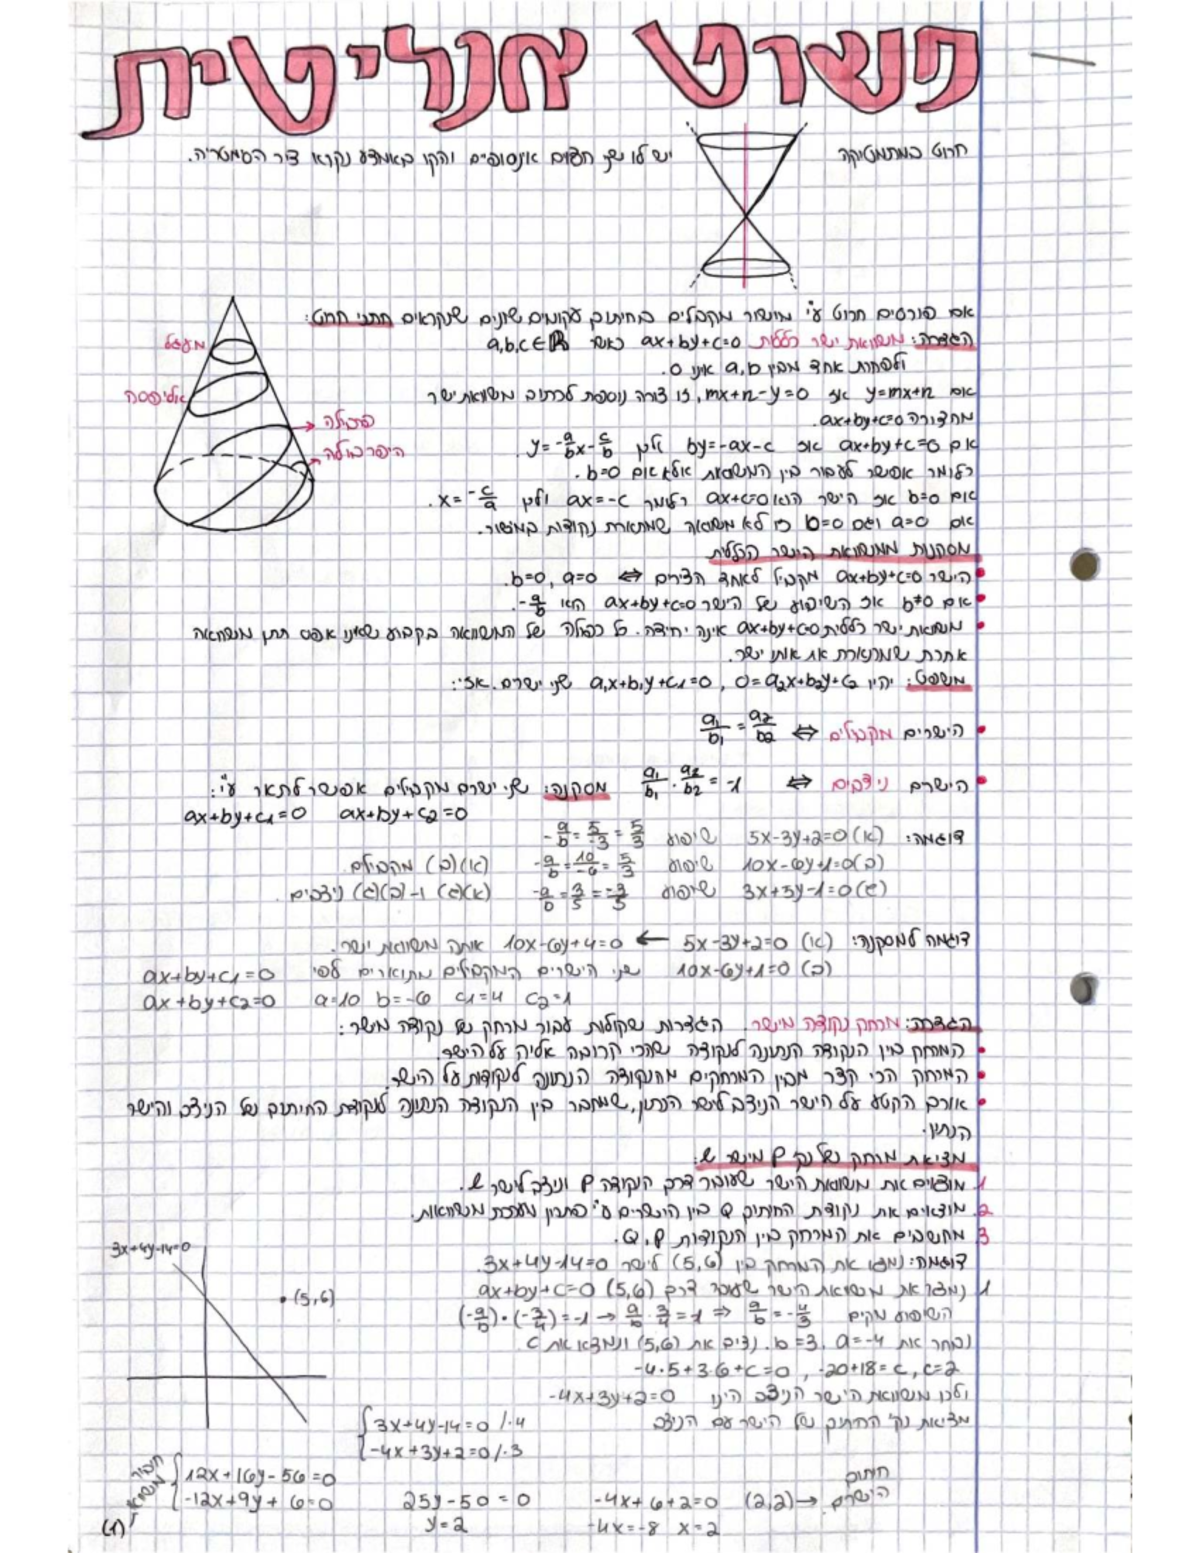 פשוט אנליטית
חרוט במתמטיקה
יש לו שני חצאים אינסופיים והקו באמצע נקרא ציר הסמטריה.
אם פורסים חרוט ע"י מישור מקבלים בחיתוך עקומים שונים שנקראים חתכי חרוט:
מעגל
אליפסה
פרבולה
היפרבולה
הגדרה: משוואת ישר כללית ax+by+c=0 כאשר a,b,c∈R
ולפחות אחד מבין a,b אינו 0.
אם y=mx+n אז mx+n-y=0, זו צורה נוספת לכתוב משוואת ישר
מהצורה ax+by+c=0.
אם ax+by+c=0 אז by=-ax-c ולכן y=-a/b x-c/b.
כלומר אפשר לעבור בין המשוואות אלא אם b=0.
אם b=0 אז הישר הוא ax+c=0 כלומר ax=-c ולכן x=-c/a.
אם a=0 וגם b=0 זו לא משוואה שמתארת נקודות במישור.
מסקנות ממשוואת הישר הכללית
• הישר ax+by+c=0 מקביל לאחד הצירים ⇔ b=0, a=0.
• אם b≠0 אז השיפוע של הישר ax+by+c=0 הוא -a/b.
• משוואת ישר כללית ax+by+c=0 אינה יחידה. כל כפולה של המשוואה בקבוע שאינו אפס תתן משוואה
אחרת שמתארת את אותו ישר.
משפט: יהיו a₁x+b₁y+c₁=0, 0=a₂x+b₂y+c₂ שני ישרים. אזי:
• הישרים מקבילים ⇔ a₁/b₁=a₂/b₂
• הישרים ניצבים ⇔ a₁/b₁·a₂/b₂=-1
מסקנה: שני ישרים מקבילים אפשר לתאר ע"י:
ax+by+c₁=0 ax+by+c₂=0
דוגמה: (א) 5x-3y+2=0 שיפוע -a/b=5/-3=5/3
(ב) 10x-6y+1=0 שיפוע -a/b=10/-6=5/3 (א)(ב) מקבילים.
(ג) 3x+5y-1=0 שיפוע -a/b=3/5=-3/5 (א)(ג) ו-(ב)(ג) ניצבים.
דוגמה למסקנה: (א) 5x-3y+2=0 ← 10x-6y+4=0 אותה משוואת ישר.
(ב) 10x-6y+1=0 שני הישרים המקבילים מתוארים לפי ax+by+c₁=0
ax+by+c₂=0 a=10 b=-6 c₁=4 c₂=1
הגדרה: מרחק נקודה מישר. הגדרות שקולות עבור מרחק של נקודה מישר:
• המרחק בין הנקודה הנתונה לנקודה שהכי קרובה אליה על הישר.
• המרחק הכי קצר מבין המרחקים מהנקודה הנתונה לנקודות על הישר.
• אורך הקטע על הישר הניצב לישר הנתון, שמחבר בין הנקודה הנתונה לנקודת החיתוך של הניצב והישר
הנתון.
מציאת מרחק של נק' P מישר l:
1. מוצאים את משוואת הישר שעובר דרך הנקודה P וניצב לישר l.
2. מוצאים את נקודת החיתוך Q בין הישרים ע"י פתרון מערכת משוואות.
3 מחשבים את המרחק בין הנקודות Q,P.
דוגמה: נמצא את המרחק בין (5,6) לישר 3x+4y-14=0.
3x+4y-14=0
(5,6)
1 נמצא את משוואת הישר שעובר דרך (5,6) ax+by+c=0
השיפוע מקיים (-a/b)·(-3/4)=-1 → a/b·3/4=-1 ⇒ a/b=-4/3
נבחר את a=-4, b=3. נציב את (5,6) ונמצא את C
-4·5+3·6+c=0, -20+18=c, c=2
ולכן משוואת הישר הניצב הינו -4x+3y+2=0
מציאת נק' החיתוך של הישר עם הניצב
3x+4y-14=0 /·4
-4x+3y+2=0 /·3
חיבור משוואות
12x+16y-56=0
-12x+9y+6=0
25y-50=0
y=2
-4x+6+2=0
-4x=-8 x=2
(2,2) → חיתוך
הישרים.
(1)